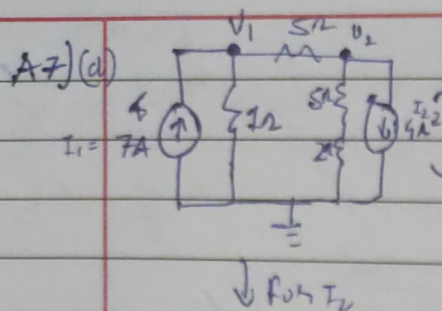 A7)(d)
V1 5Ω V2
I1 = 7A
5Ω
2Ω
I2
↓ For I2